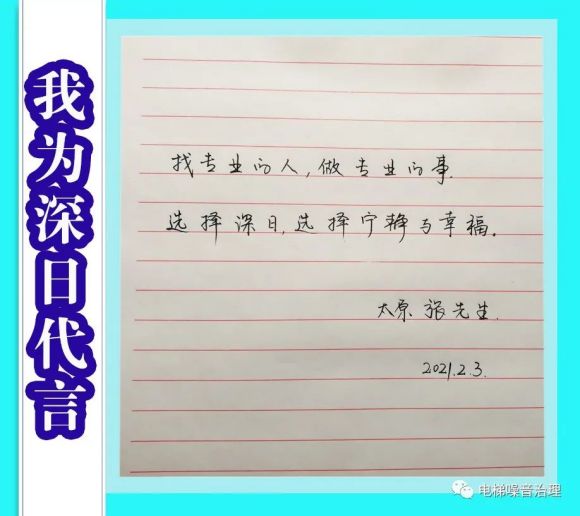 我为深日代言
找专业的人,做专业的事.
选择深日,选择宁静与幸福。
太原 张先生.
2021.2.3.
电梯噪音治理